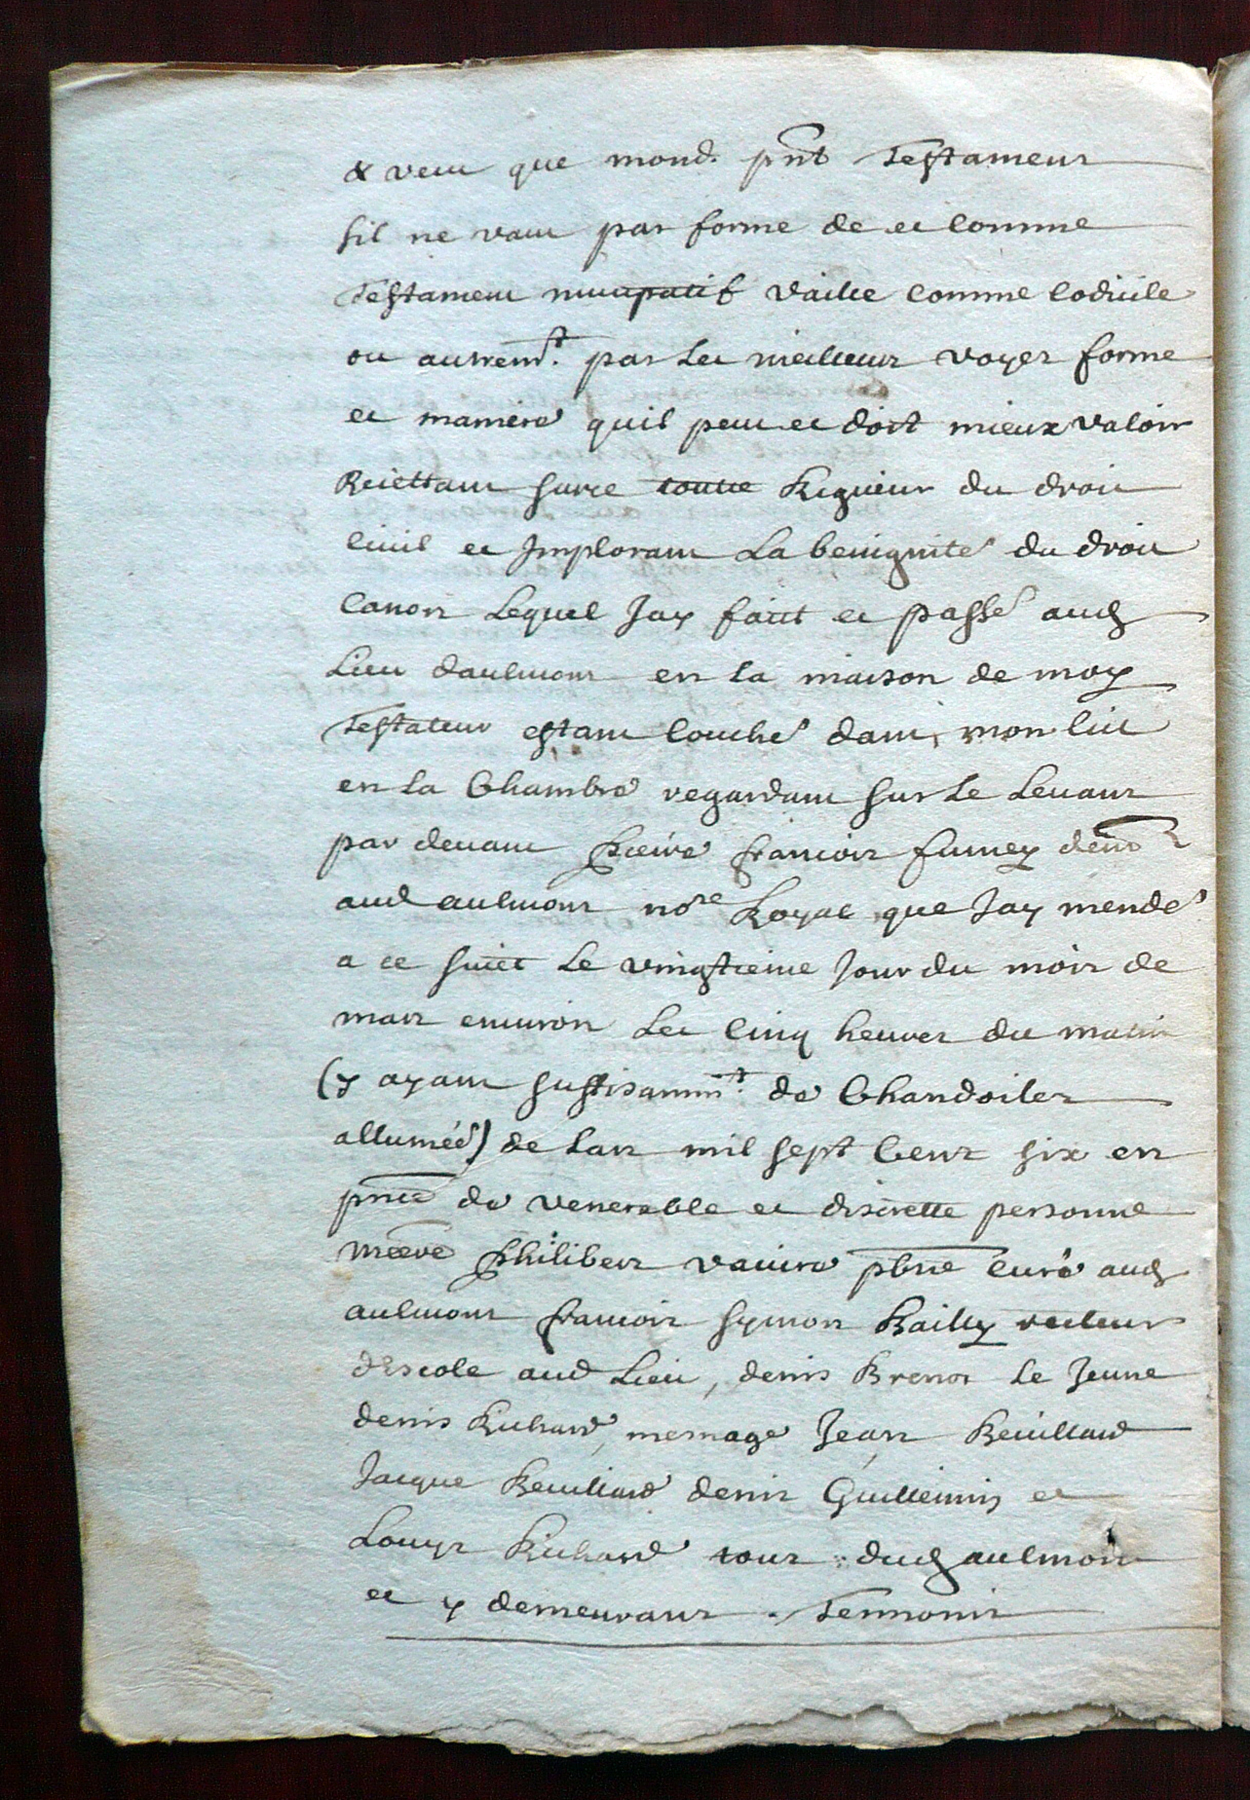 & veut que mond. pnt Testament
sil ne vaut par forme de et comme
Testament nuncupatif vaille comme codicile
ou autremt. par les meilleurs voyes forme
et maniere quil peut et doit mieux valoir
Reiettant surce toutte Rigueur du droit
Civil et Jmplorant La benignité du droit
Canon Lequel Jay faict et passé aud
Lieu daulmont en la maison de moy
Testateur estant Couché dans mon lict
en La Chambre regardant sur Le Levant
par devant francois fumey
aud aulmont nore Royal que Jay mendé
a ce suiet Le vingtieme Jour du mois de
mars environ Les Cinq heures du matin
(y ayant suffisammt. de Chandoiles
allumées) de Lan mil sept Cent six en
pnce de venerable et discrette personne
messre Philibert vavire pbre Curé aud
aulmont francois symon Bailly recteur
descole aud Lieu, denis Brenot Le Jeune
denis Richard, mesnage Jean Revillard
Jacque Revillard denis Guillemin et
Louys Richard tous dud aulmont
et y demeurans . Tesmoins